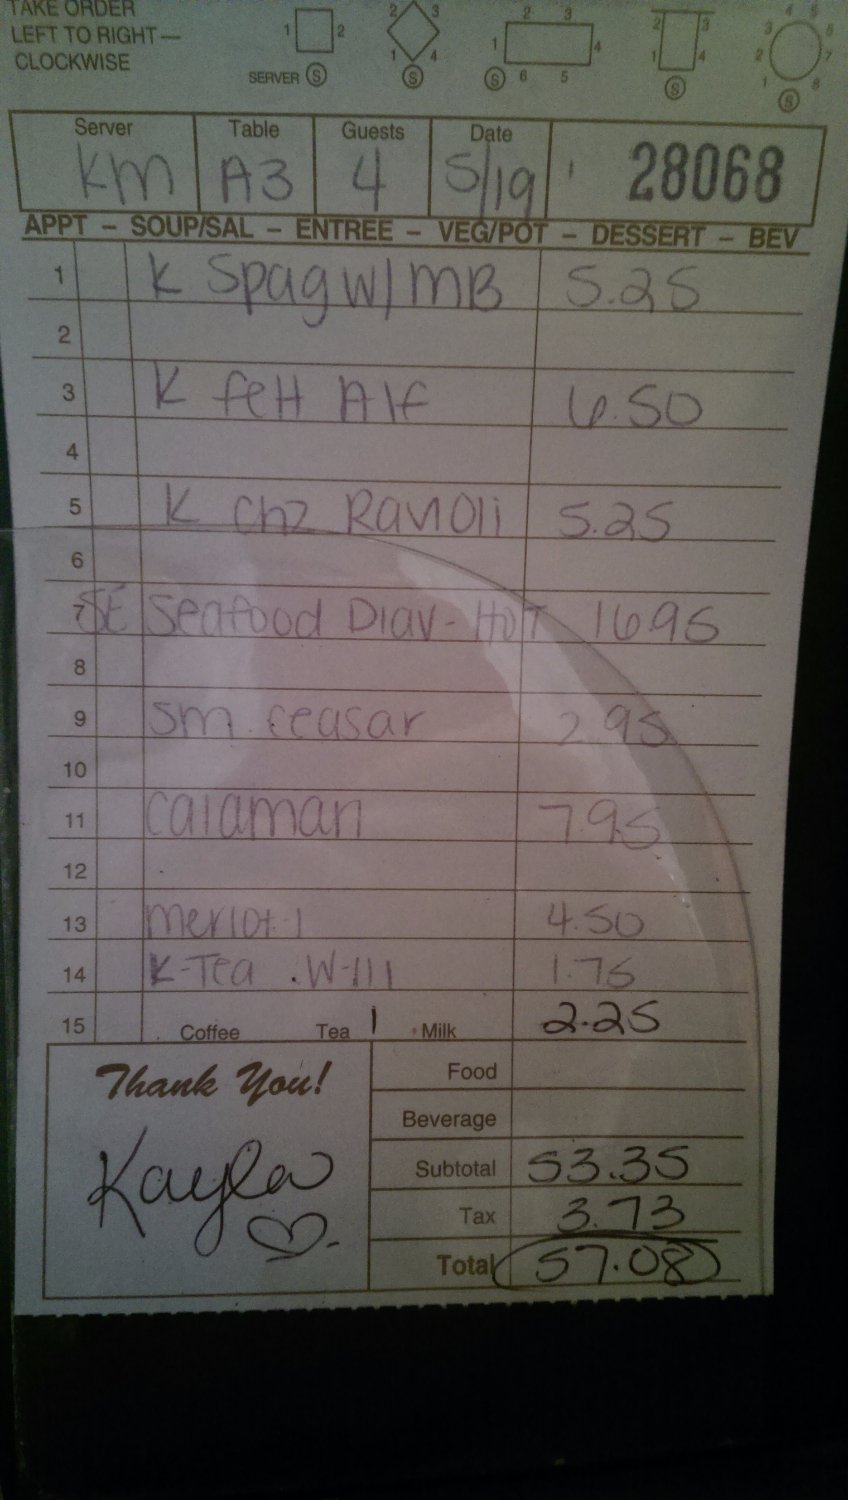 TAKE ORDER
LEFT TO RIGHT—
CLOCKWISE
1 2
2 3 1 4
2 3 1 4 6 5
2 3 1 4
4 5 3 6 2 7 1 8
SERVER S S S S S
Server Table Guests Date
Km A3 4 5/19 28068
APPT – SOUP/SAL – ENTREE – VEG/POT – DESSERT – BEV
1 K Spag w/ MB 5.25
2
3 K fett Alf 6.50
4
5 K chz Ravioli 5.25
6
7 SE Seafood Diav-HOT 16.95
8
9 Sm ceasar 2.95
10
11 calamari 7.95
12
13 merlot-1 4.50
14 K-Tea .W-III 1.75
15 Coffee Tea 1 Milk 2.25
Thank You!
Kayla
Food
Beverage
Subtotal 53.35
Tax 3.73
Total 57.08